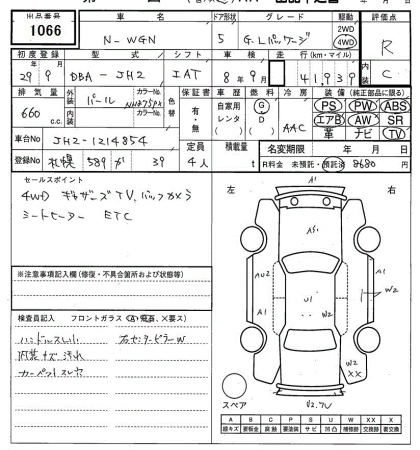 出品番号 1066
車名 N-WGN
ドア形状 5
グレード G・Lパッケージ
駆動 2WD 4WD
評価点 R C
初度登録 29年9月
型式 DBA-JH2
シフト IAT
車検 8年9月
走行(km・マイル) 41,939
排気量 660 c.c.
外装 パール
カラーNo. NH875PX
内装
カラーNo.
色替
保証書 有・無
車歴 自家用 レンタ
燃料 G D
冷房 AAC
装備(純正部品に限る)
PS PW ABS
エアB AW SR
革 ナビ TV
車台No JH2-1214854
定員 4人
積載量 t
名変期限 年 月 日
登録No 札幌 589 が 39
R料金 未預託・預託済 8680 円
セールスポイント
4WD ギャザーズTV、バックカメラ
シートヒーター ETC
※注意事項記入欄(修復・不具合箇所および状態等)
検査員記入 フロントガラス(A・飛石、X要ス)
ハンドルスレ小 右センターピラーW
内装キズ汚れ
カーペットスレ穴
左 右
A1
AU2
A1
A1
U1
W2
W2
W2
XX
スペア
U2.7U
A B C P S U W XX X
線キズ 要板金 腐触 要塗装 サビ 凹凸 補修跡 交換済 要交換